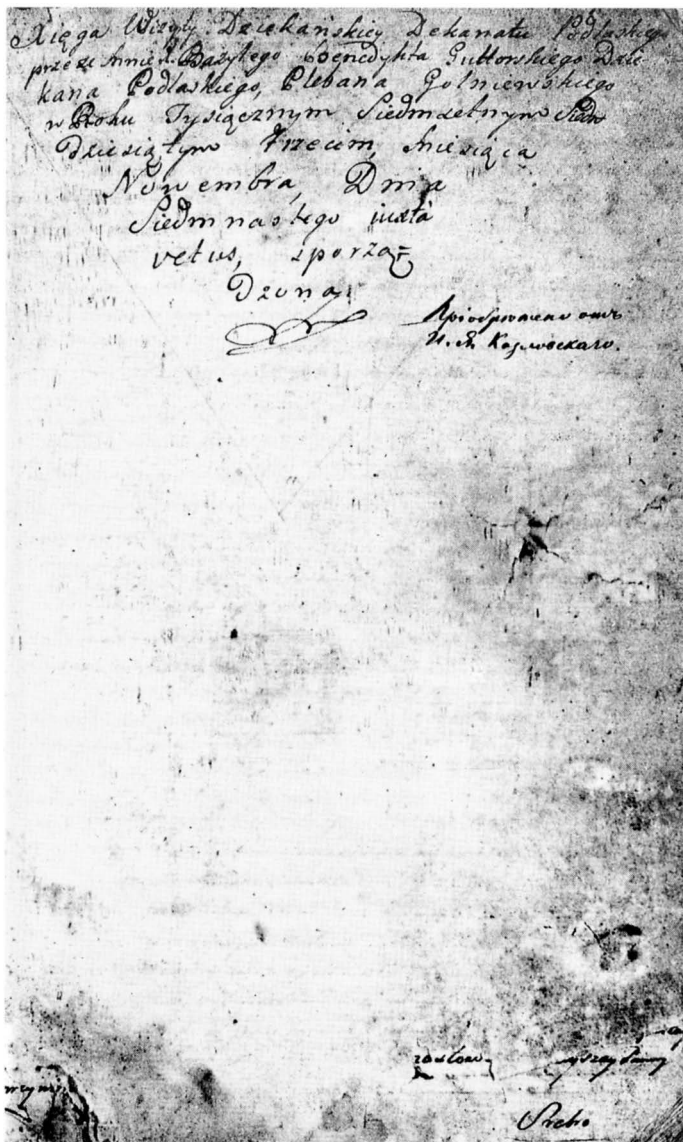 Xięga Wizyty Dziekańskiey Dekanatu Podlaskiego
przeze mnie X. Bazylego Benedykta Guttorskiego Dzie
kana Podlaskiego, Plebana
w Roku Tysiącznym Siedmsetnym Siedm
Dziesiątym Trzecim, Miesiąca
Nowembra, Dnia
Siedmnastego iuxta
vetus, sporzą=
Dzona
отъ
Козловскаго.
Srebro